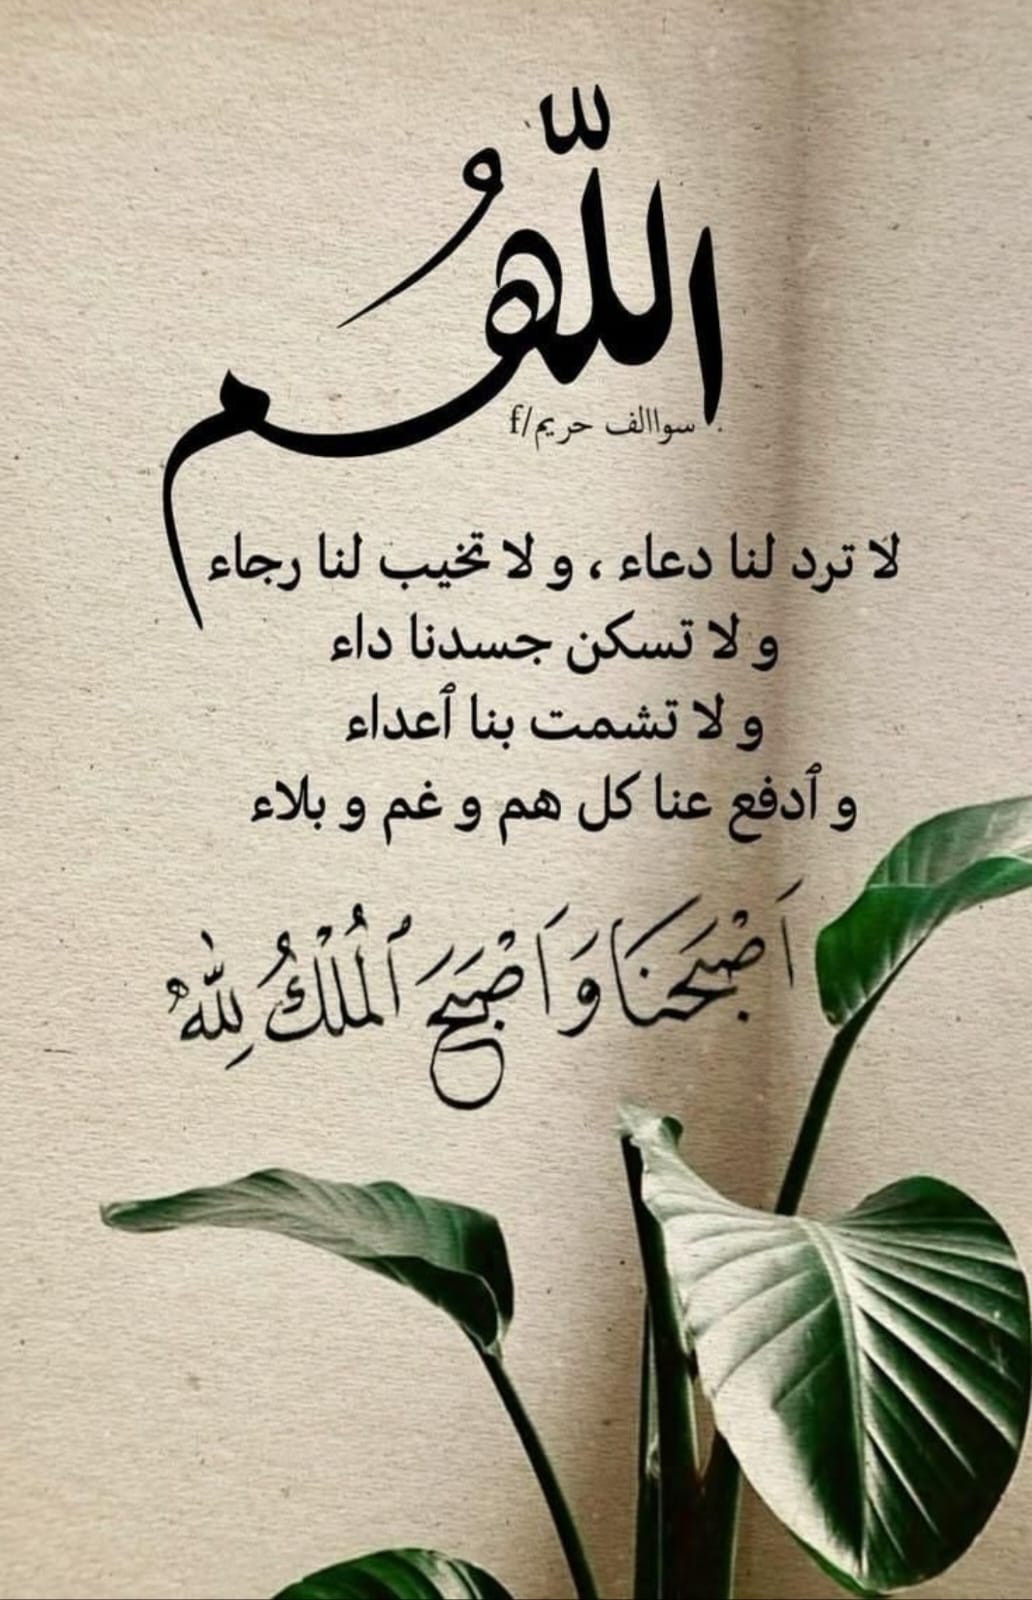 اللّهُم
سواالف حريم/f .
لا ترد لنا دعاء ، و لا تخيب لنا رجاء
و لا تسكن جسدنا داء
و لا تشمت بنا ٱعداء
و ٱدفع عنا كل هم و غم و بلاء
اَصْبَحنَا وَاَصْبَحَ ٱلمُلْكُ لِلّٰه